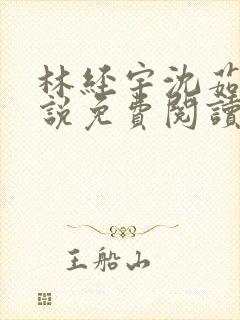 林经宇沈茹
說免費閱讀
王船山